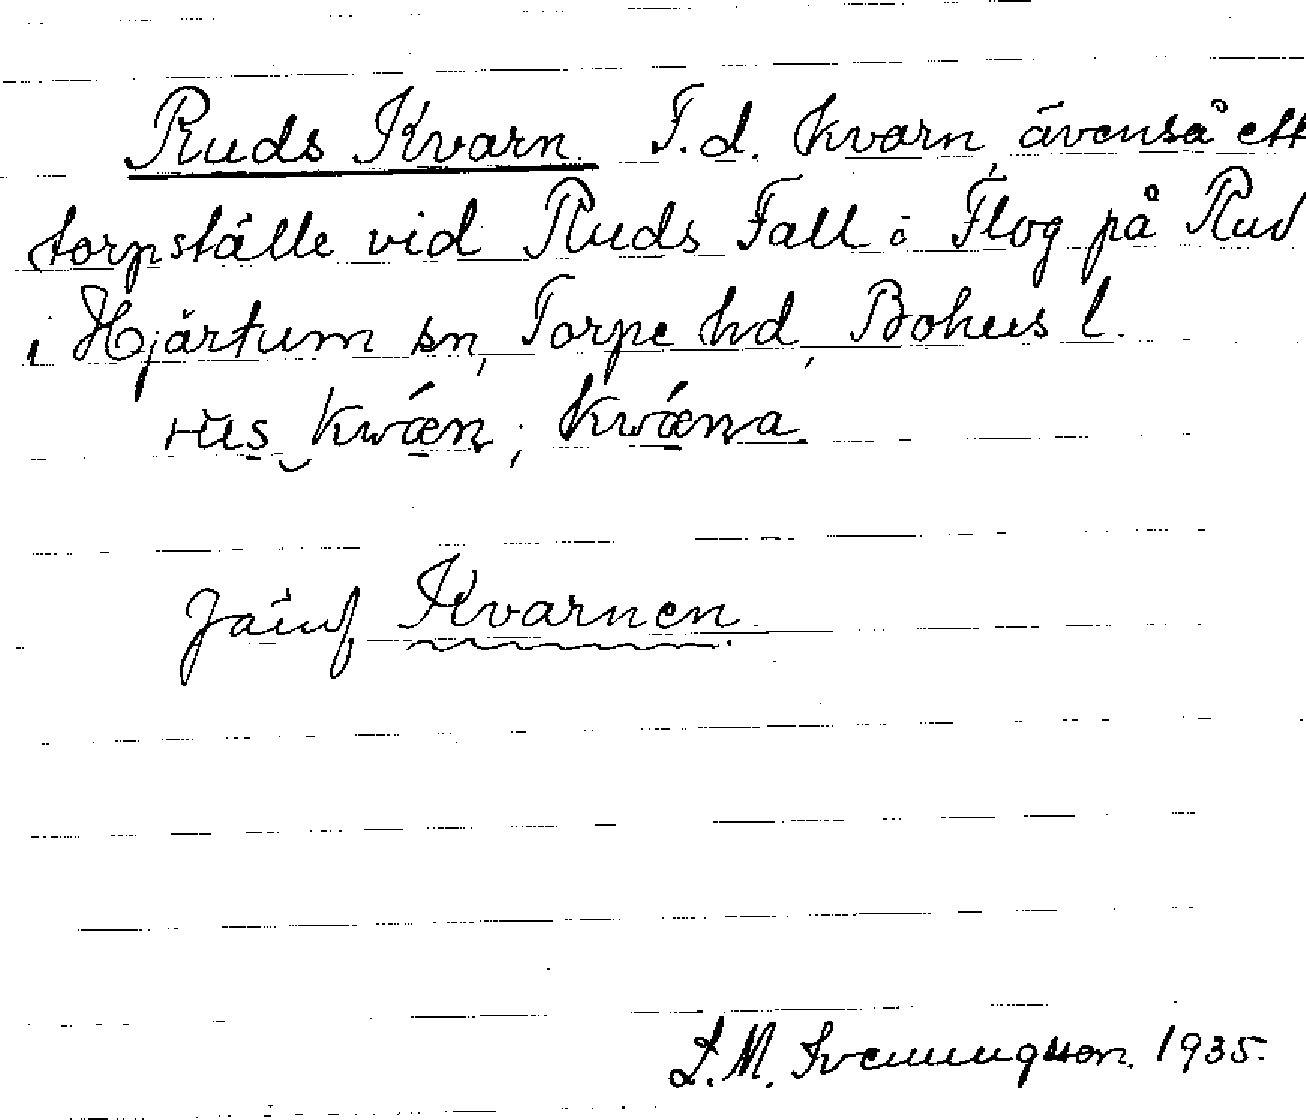 Ruds Kvarn. F.d. kvarn, ävenså ett
torpställe vid Ruds Fall i Flog på Rud
i Hjärtum sn, Torpe hd, Bohus l.
rŭs kwǽn; kwǽna.
Jämf Kvarnen.
L.M. Svenungsson. 1935.